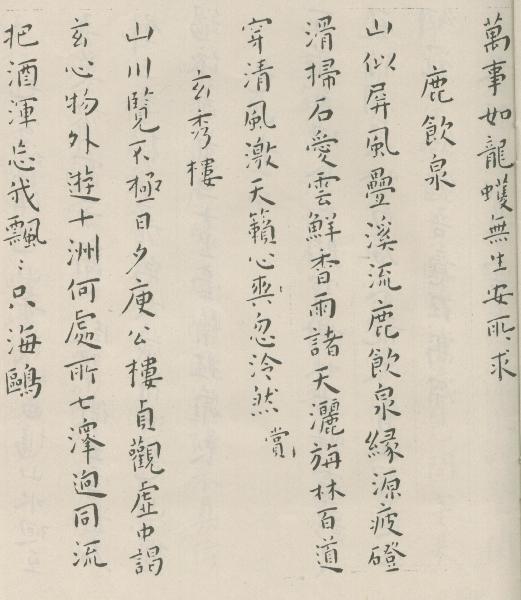 萬事如龍蠖無生安所求
鹿飲泉
山似屏風疊溪流鹿飲泉緣源疲磴
滑掃石愛雲鮮香雨諸天灑旃林百道
穿清風激天籟心與忽泠然
賞
玄秀樓
山川覽不極日夕庾公樓貞觀虛中謁
玄心物外遊十洲何處所七澤迥同流
把酒渾忘我飄〻只海鷗